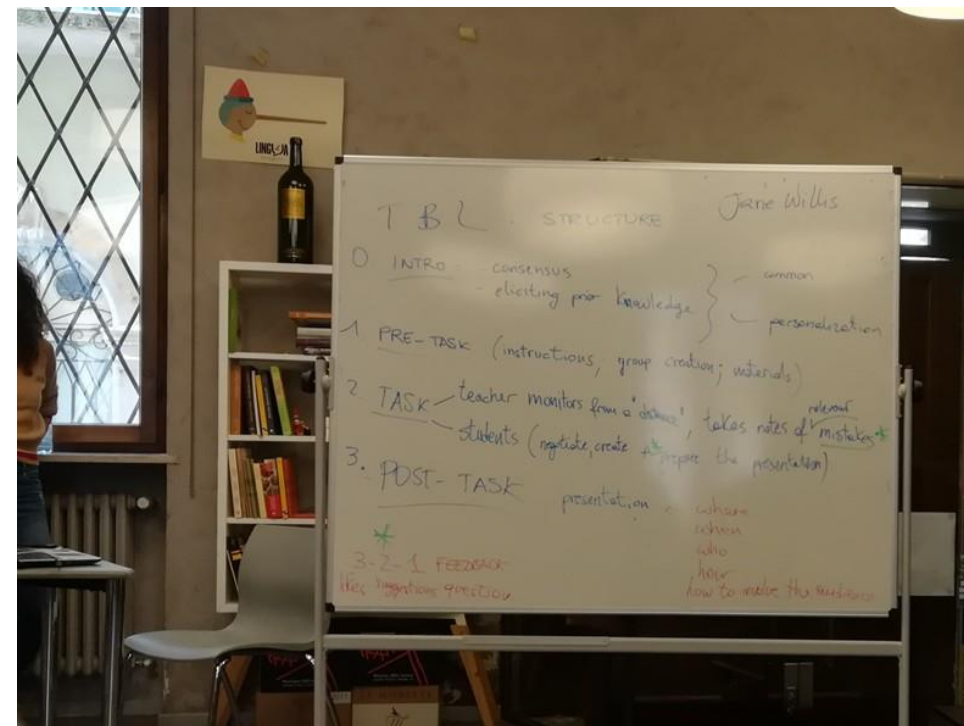 LINGUA
TBL. STRUCTURE Jane Willis
0. INTRO - consensus
- eliciting prior knowledge
common
personalization
1. PRE-TASK (instructions, group creation; materials)
2. TASK teacher monitors from a "distance", takes notes of relevant mistakes *
students (negotiate, create + prepare the presentation)
3. POST-TASK presentation
where
when
who
how
how to involve the audience
*
3-2-1 FEEDBACK
likes suggestions question